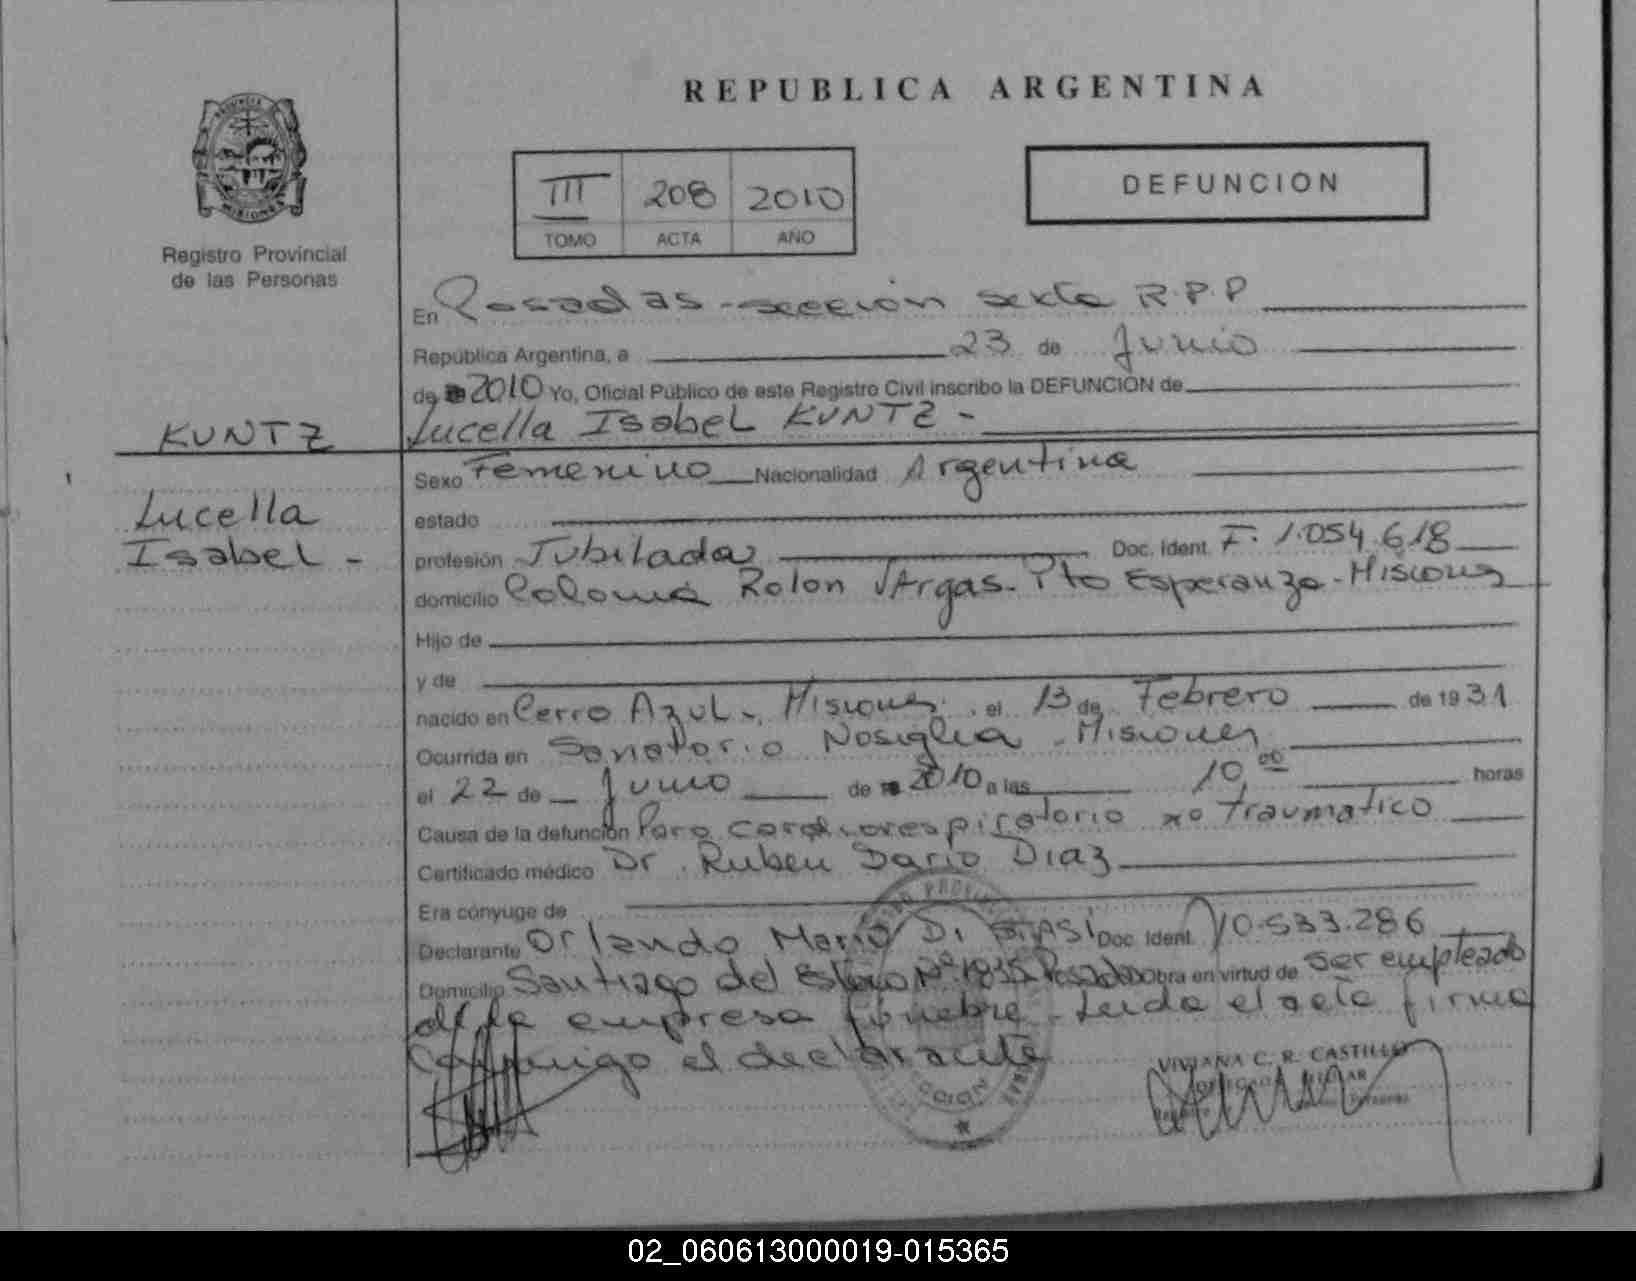 REPUBLICA ARGENTINA
MISIONES
Registro Provincial
de las Personas
III 208 2010
TOMO ACTA AÑO
DEFUNCION
En Posadas - sección sexta R.P.P
República Argentina, a 23 de Junio
de 2010 Yo, Oficial Público de este Registro Civil inscribo la DEFUNCION de
Lucella Isabel KUNTZ -
KUNTZ
Lucella
Isabel -
Sexo Femenino Nacionalidad Argentina
estado
profesión Jubilada Doc. Ident. F. 1.054.618
domicilio Colonia Rolon Vargas - Pto Esperanza - Misiones
Hijo de
y de
nacido en Cerro Azul - Misiones el 13 de Febrero de 1931
Ocurrida en Sanatorio Nosiglia - Misiones
el 22 de Junio de 2010 a las 10 00 horas
Causa de la defunción Paro cardiorespiratorio no traumatico
Certificado médico Dr. Ruben Dario Diaz
Era cónyuge de
Declarante Orlando Mario Di Doc. Ident. 10.533.286
Domicilio Santiago del Estero Nº 1835 Posadas Obra en virtud de ser empleado
de la empresa fúnebre - Leida el acta firma
conmigo el declarante
VIVIANA C. R. CASTILLO
02_060613000019-015365